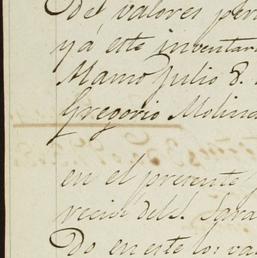 De valores per
y á este inventar
Mamo Julio 8.
Gregorio Molina
en el presente
recior del S. Sara
Do en este los va